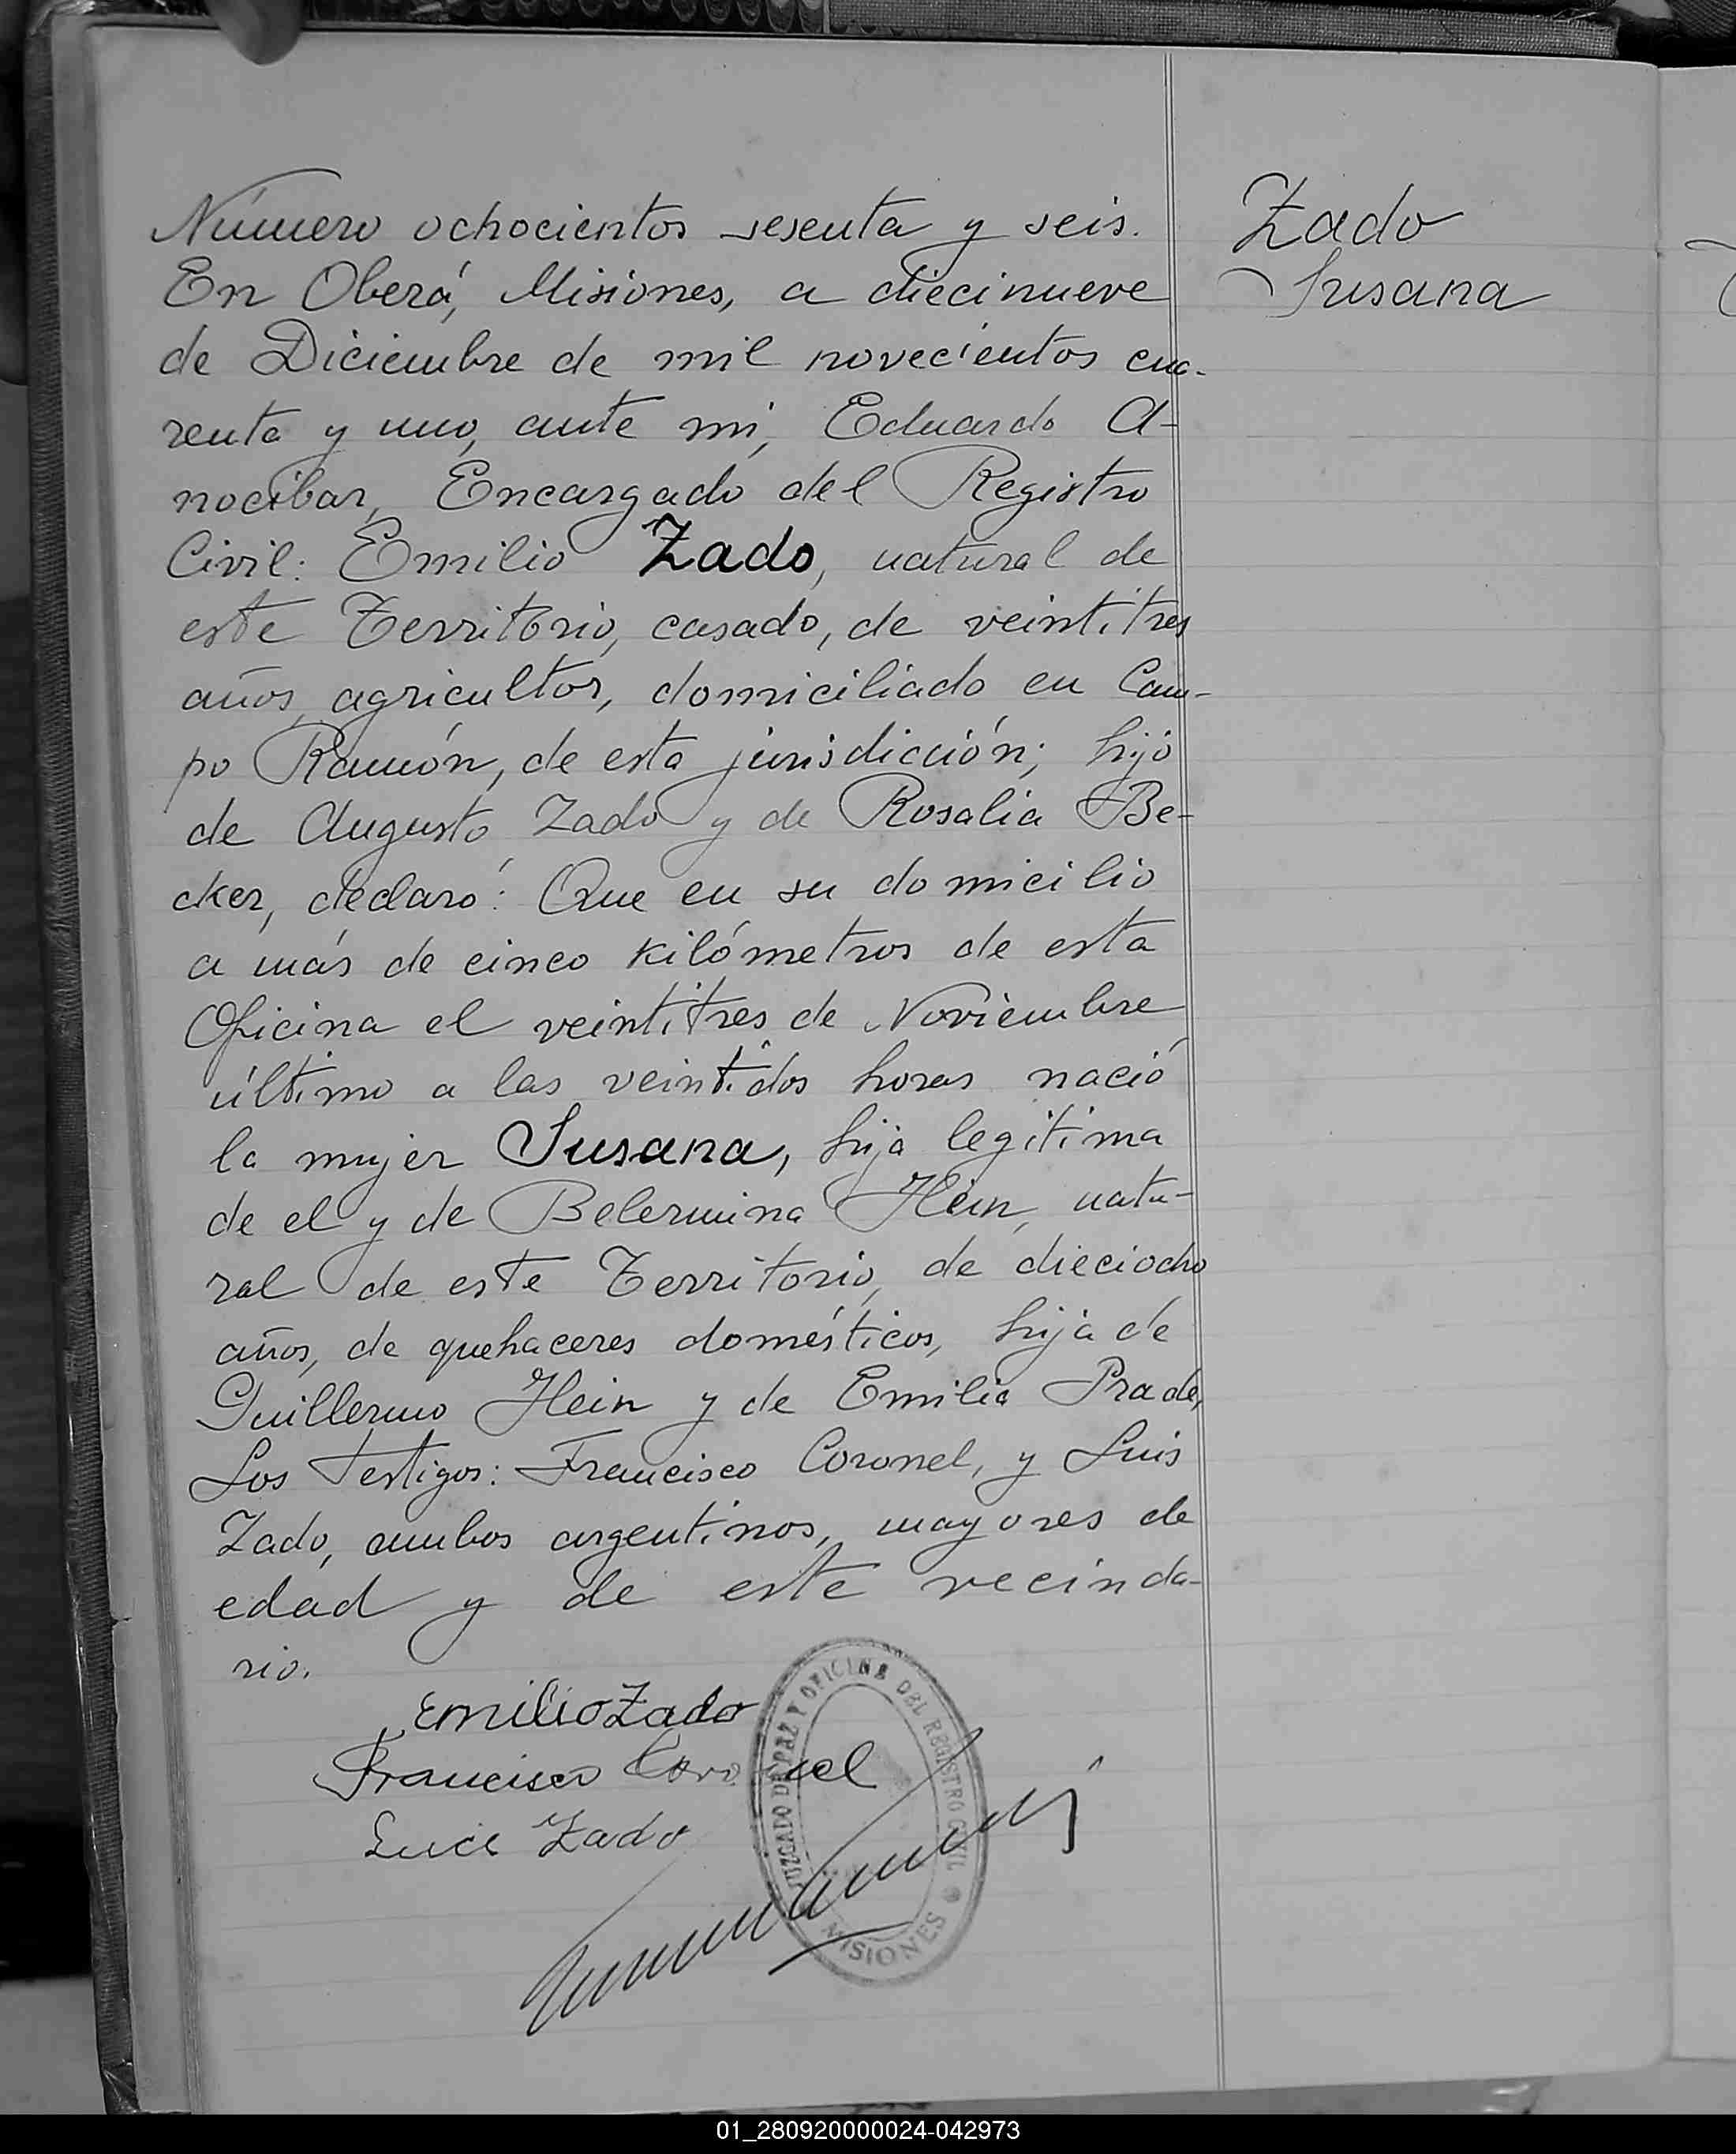 Número ochocientos sesenta y seis.
En Oberá, Misiones, a diecinueve
de Diciembre de mil novecientos cua-
renta y uno, ante mí, Eduardo A-
nocibar, Encargado del Registro
Civil: Emilio Zado, natural de
este Territorio, casado, de veintitres
años, agricultor, domiciliado en Cam-
po Ramón, de esta jurisdicción; hijo
de Augusto Zado y de Rosalia Be-
cker, declaró: Que en su domicilio
a más de cinco kilómetros de esta
Oficina el veintitres de Noviembre
último a las veintidos horas nació
la mujer Susana, hija legitima
de el y de Belermina Hein, natu-
ral de este Territorio, de dieciocho
años, de quehaceres domésticos, hija de
Guillermo Hein y de Emilia Prade,
Los Testigos: Francisco Coronel, y Luis
Zado, ambos argentinos, mayores de
edad y de este vecinda-
rio.
Emilio Zado
Francisco Coronel
Luis Zado
JUZGADO DE PAZ Y OFICINA DEL REGISTRO CIVIL
MISIONES
Zado
Susana
01_280920000024-042973